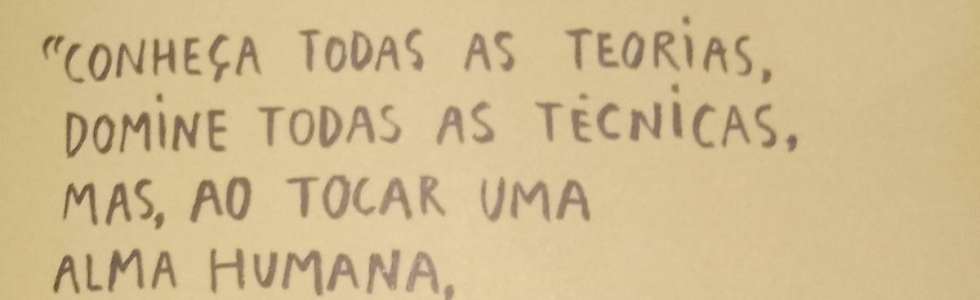 "CONHEÇA TODAS AS TEORIAS,
DOMINE TODAS AS TÉCNICAS,
MAS, AO TOCAR UMA
ALMA HUMANA,